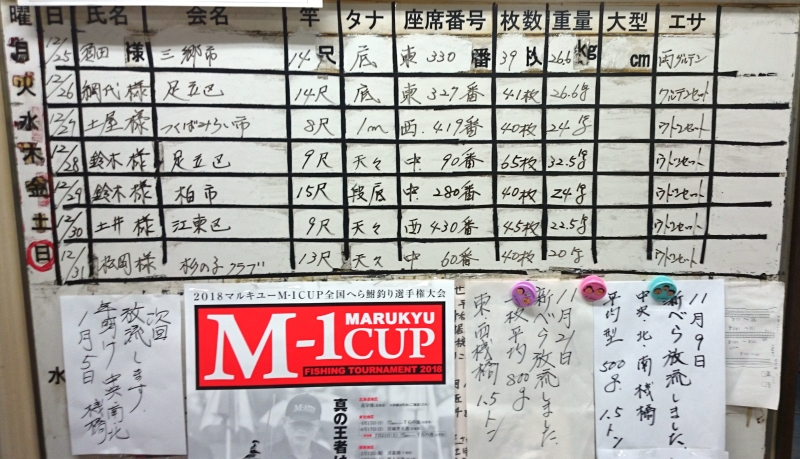 曜 日 氏名 会名 竿 タナ 座席番号 枚数 重量 大型 エサ
月 12/25 酒田様 三郷市 14尺 底 東 330番 39枚 26.6kg cm 両グルテン
火 12/26 網代様 足立区 14尺 底 東 327番 41枚 26.6㌔ グルテンセット
水 12/27 土屋様 つくばみらい市 8尺 1m 西 419番 40枚 24㌔ ウドンセット
木 12/28 鈴木様 足立区 9尺 天々 中 90番 65枚 32.5㌔ ウドンセット
金 12/29 鈴木様 柏市 15尺 段底 中 280番 40枚 24㌔ ウドンセット
土 12/30 土井様 江東区 9尺 天々 西 430番 45枚 22.5㌔ ウドンセット
日 12/31 松岡様 杉の子クラブ 13尺 天々 中 60番 40枚 20㌔ ウドンセット
水
次回
放流します
年明け 中央南北
1月5日 桟橋
2018マルキユーM-1CUP全国へら鮒釣り選手権大会
MARUKYU
M-1CUP
FISHING TOURNAMENT 2018
真の王者は
11月21日
新べら放流しました
一枚平均 800g
東西桟橋 1.5トン
11月9日
新べら放流しました
中央・北・南桟橋
平均型 500g 1.5トン